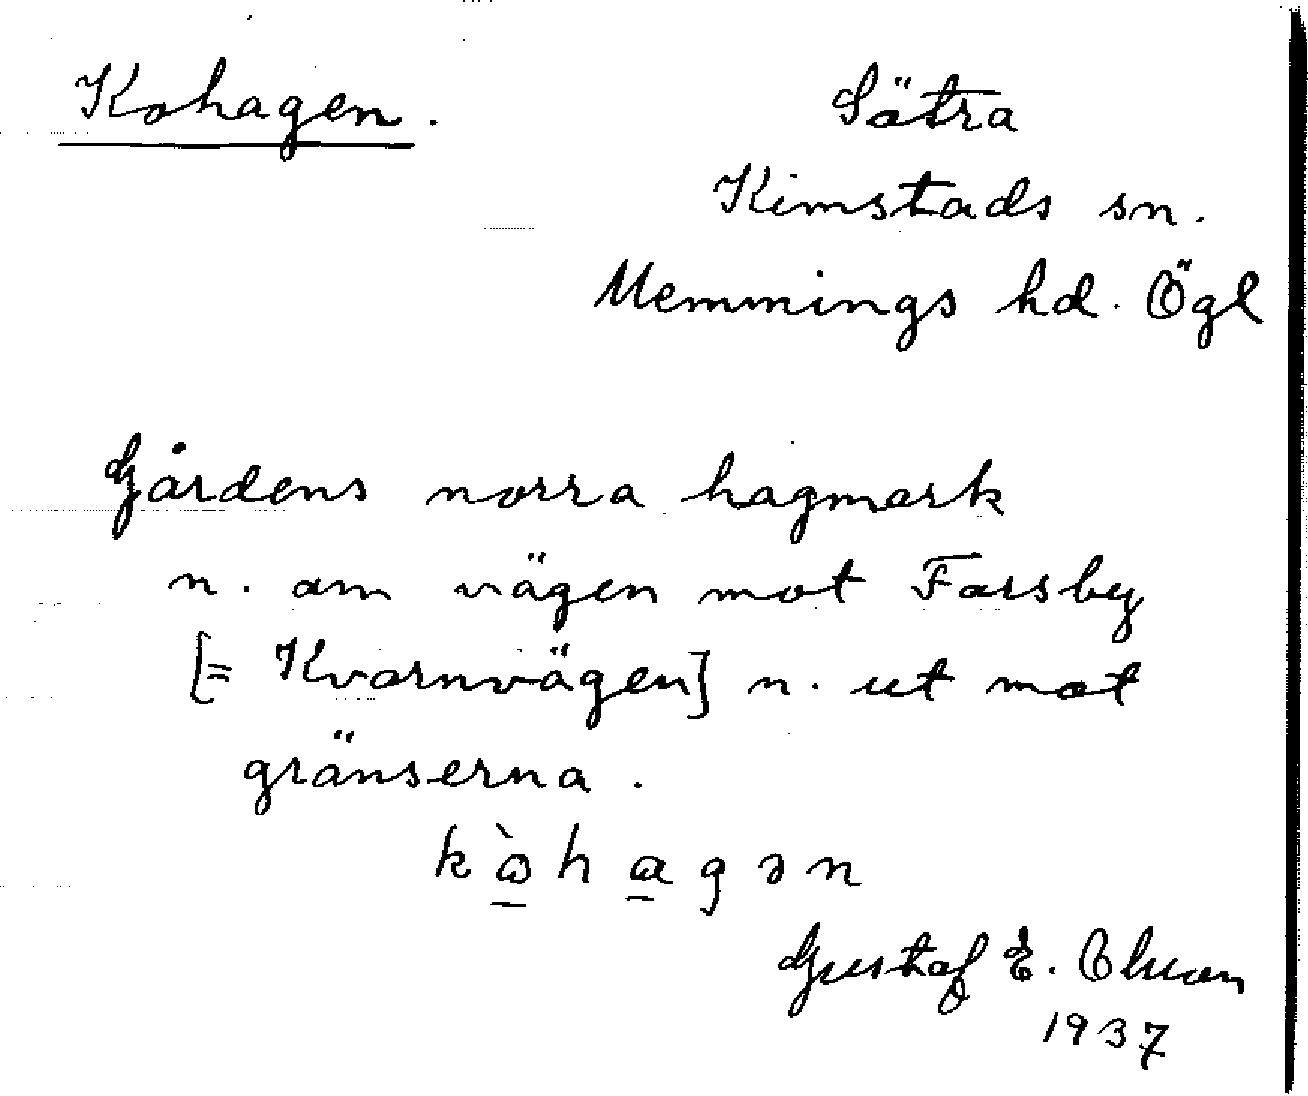 Kohagen.
Sätra
Kimstads sn.
Memmings hd. Ögl
Gårdens norra hagmark
n. om vägen mot Farsby
[= Kvarnvägen] n. ut mot
gränserna.
kὼhagən
Gustaf E. Olsson
1937